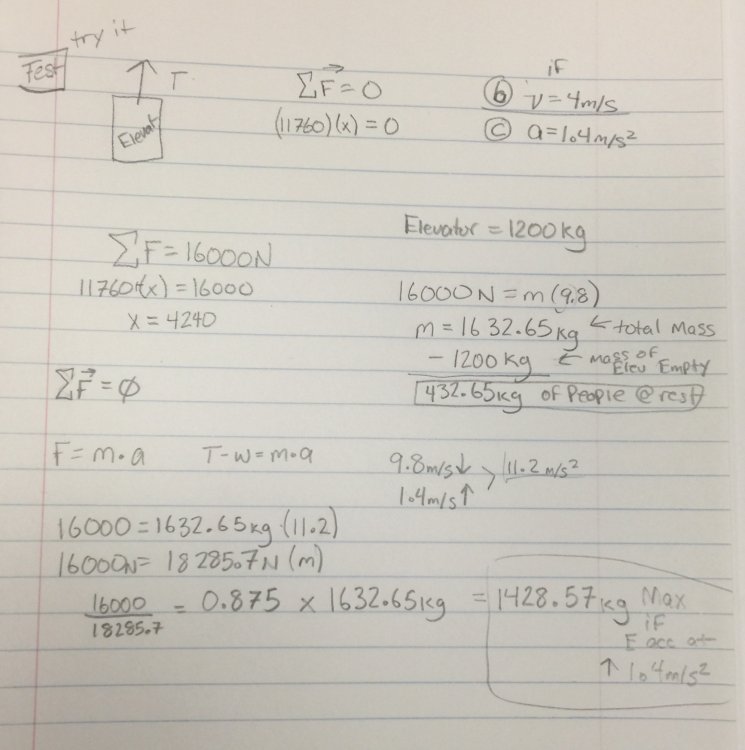 try it
Test
T
Elevat
ΣF⃗ = 0
(11760)(x) = 0
if
ⓑ v = 4m/s
ⓒ a = 1.4m/s²
Elevator = 1200kg
ΣF = 16000N
11760+(x) = 16000
x = 4240
16000N = m(9.8)
m = 1632.65kg ← total Mass
- 1200kg ← mass of Elev Empty
432.65kg of People @ rest
ΣF⃗ = ∅
F = m·a T-w = m·a
9.8m/s↓ > 11.2m/s²
1.4m/s↑
16000 = 1632.65kg·(11.2)
16000N = 18285.7N (m)
16000/18285.7 = 0.875 x 1632.65kg = 1428.57kg Max
if
E acc at
↑ 1.4m/s²